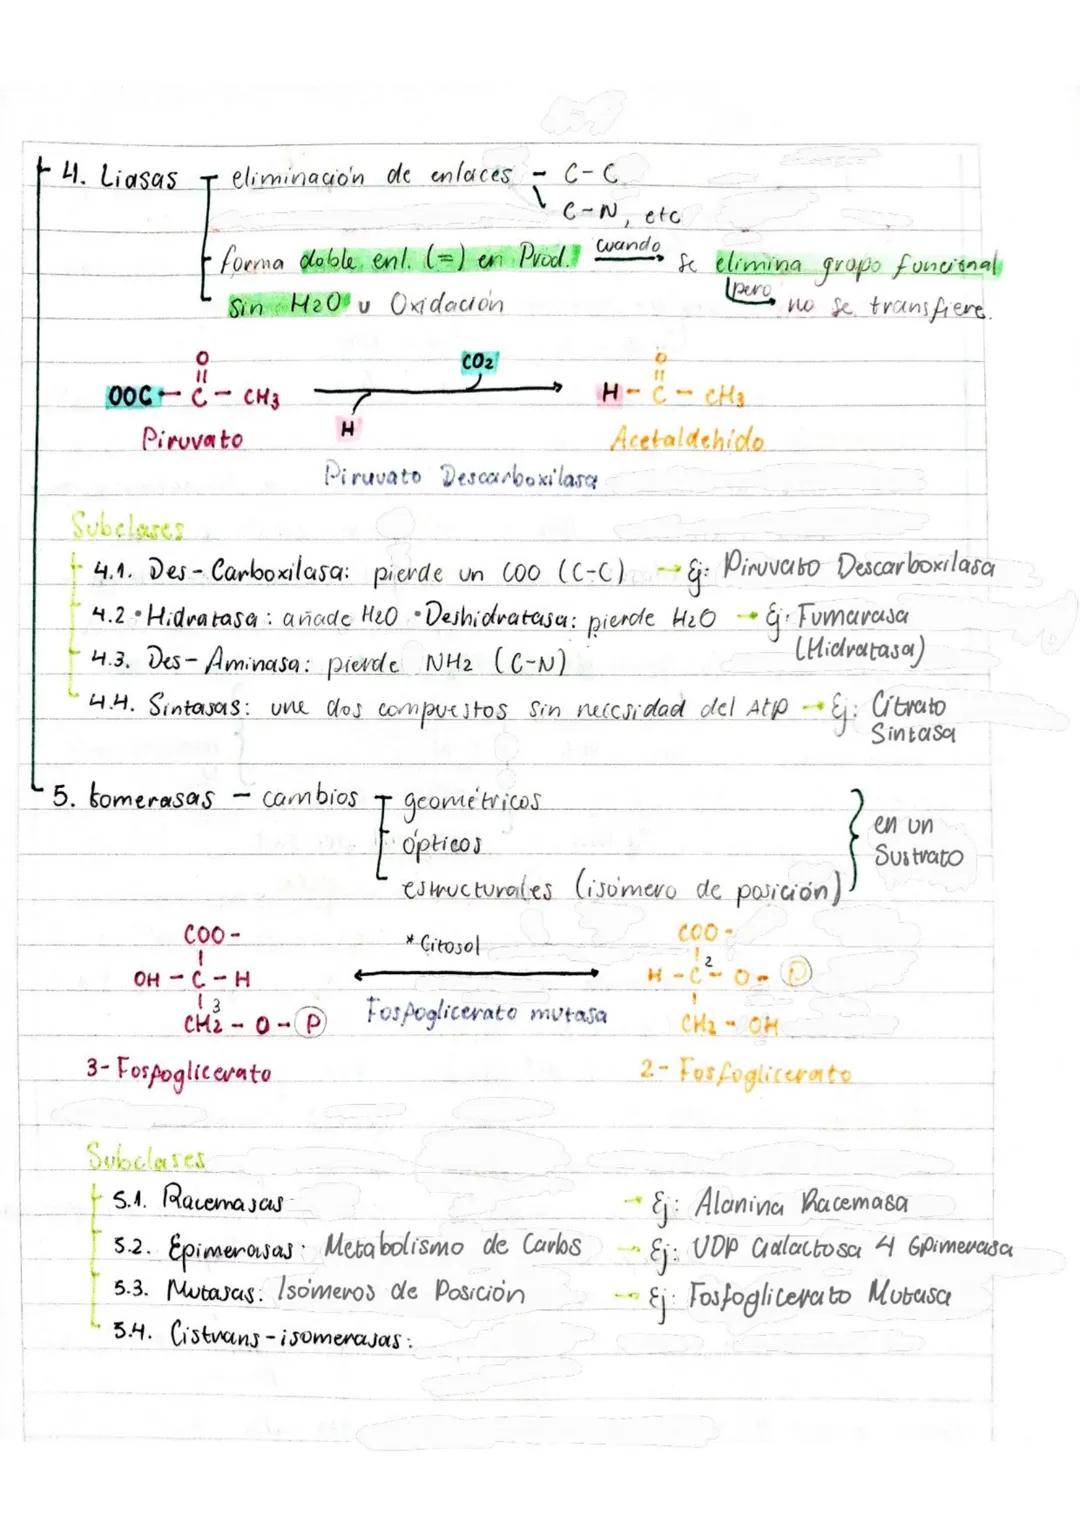 4. Liasas eliminación de enlaces - C-C
C-N, etc
forma doble enl. (=) en Prod. cuando se elimina grupo funcional
sin H2O u Oxidación pero no se transfiere.
O CO2 O
OOC - C - CH3 H - C - CH3
H
Piruvato Acetaldehido
Piruvato Descarboxilasa
Subclases
4.1. Des-Carboxilasa: pierde un COO (C-C) → Ej: Piruvato Descarboxilasa
4.2 • Hidratasa: añade H2O • Deshidratasa: pierde H2O → Ej: Fumarasa
(Hidratasa)
4.3. Des-Aminasa: pierde NH2 (C-N)
4.4. Sintasas: une dos compuestos sin necesidad del Atp → Ej: Citrato
Sintasa
5. Isomerasas - cambios geométricos
ópticos
en un
Sustrato
estructurales (isómero de posición)
COO- * Citosol COO-
OH - C - H H - C2 - O - P
3
CH2 - O - P Fosfoglicerato mutasa CH2 - OH
3-Fosfoglicerato 2-Fosfoglicerato
Subclases
5.1. Racemasas → Ej: Alanina Racemasa
5.2. Epimerasas: Metabolismo de Carbs → Ej: UDP Galactosa 4 Epimerasa
5.3. Mutasas: Isómeros de Posición → Ej: Fosfoglicerato Mutasa
5.4. Cistrans-isomerasas: